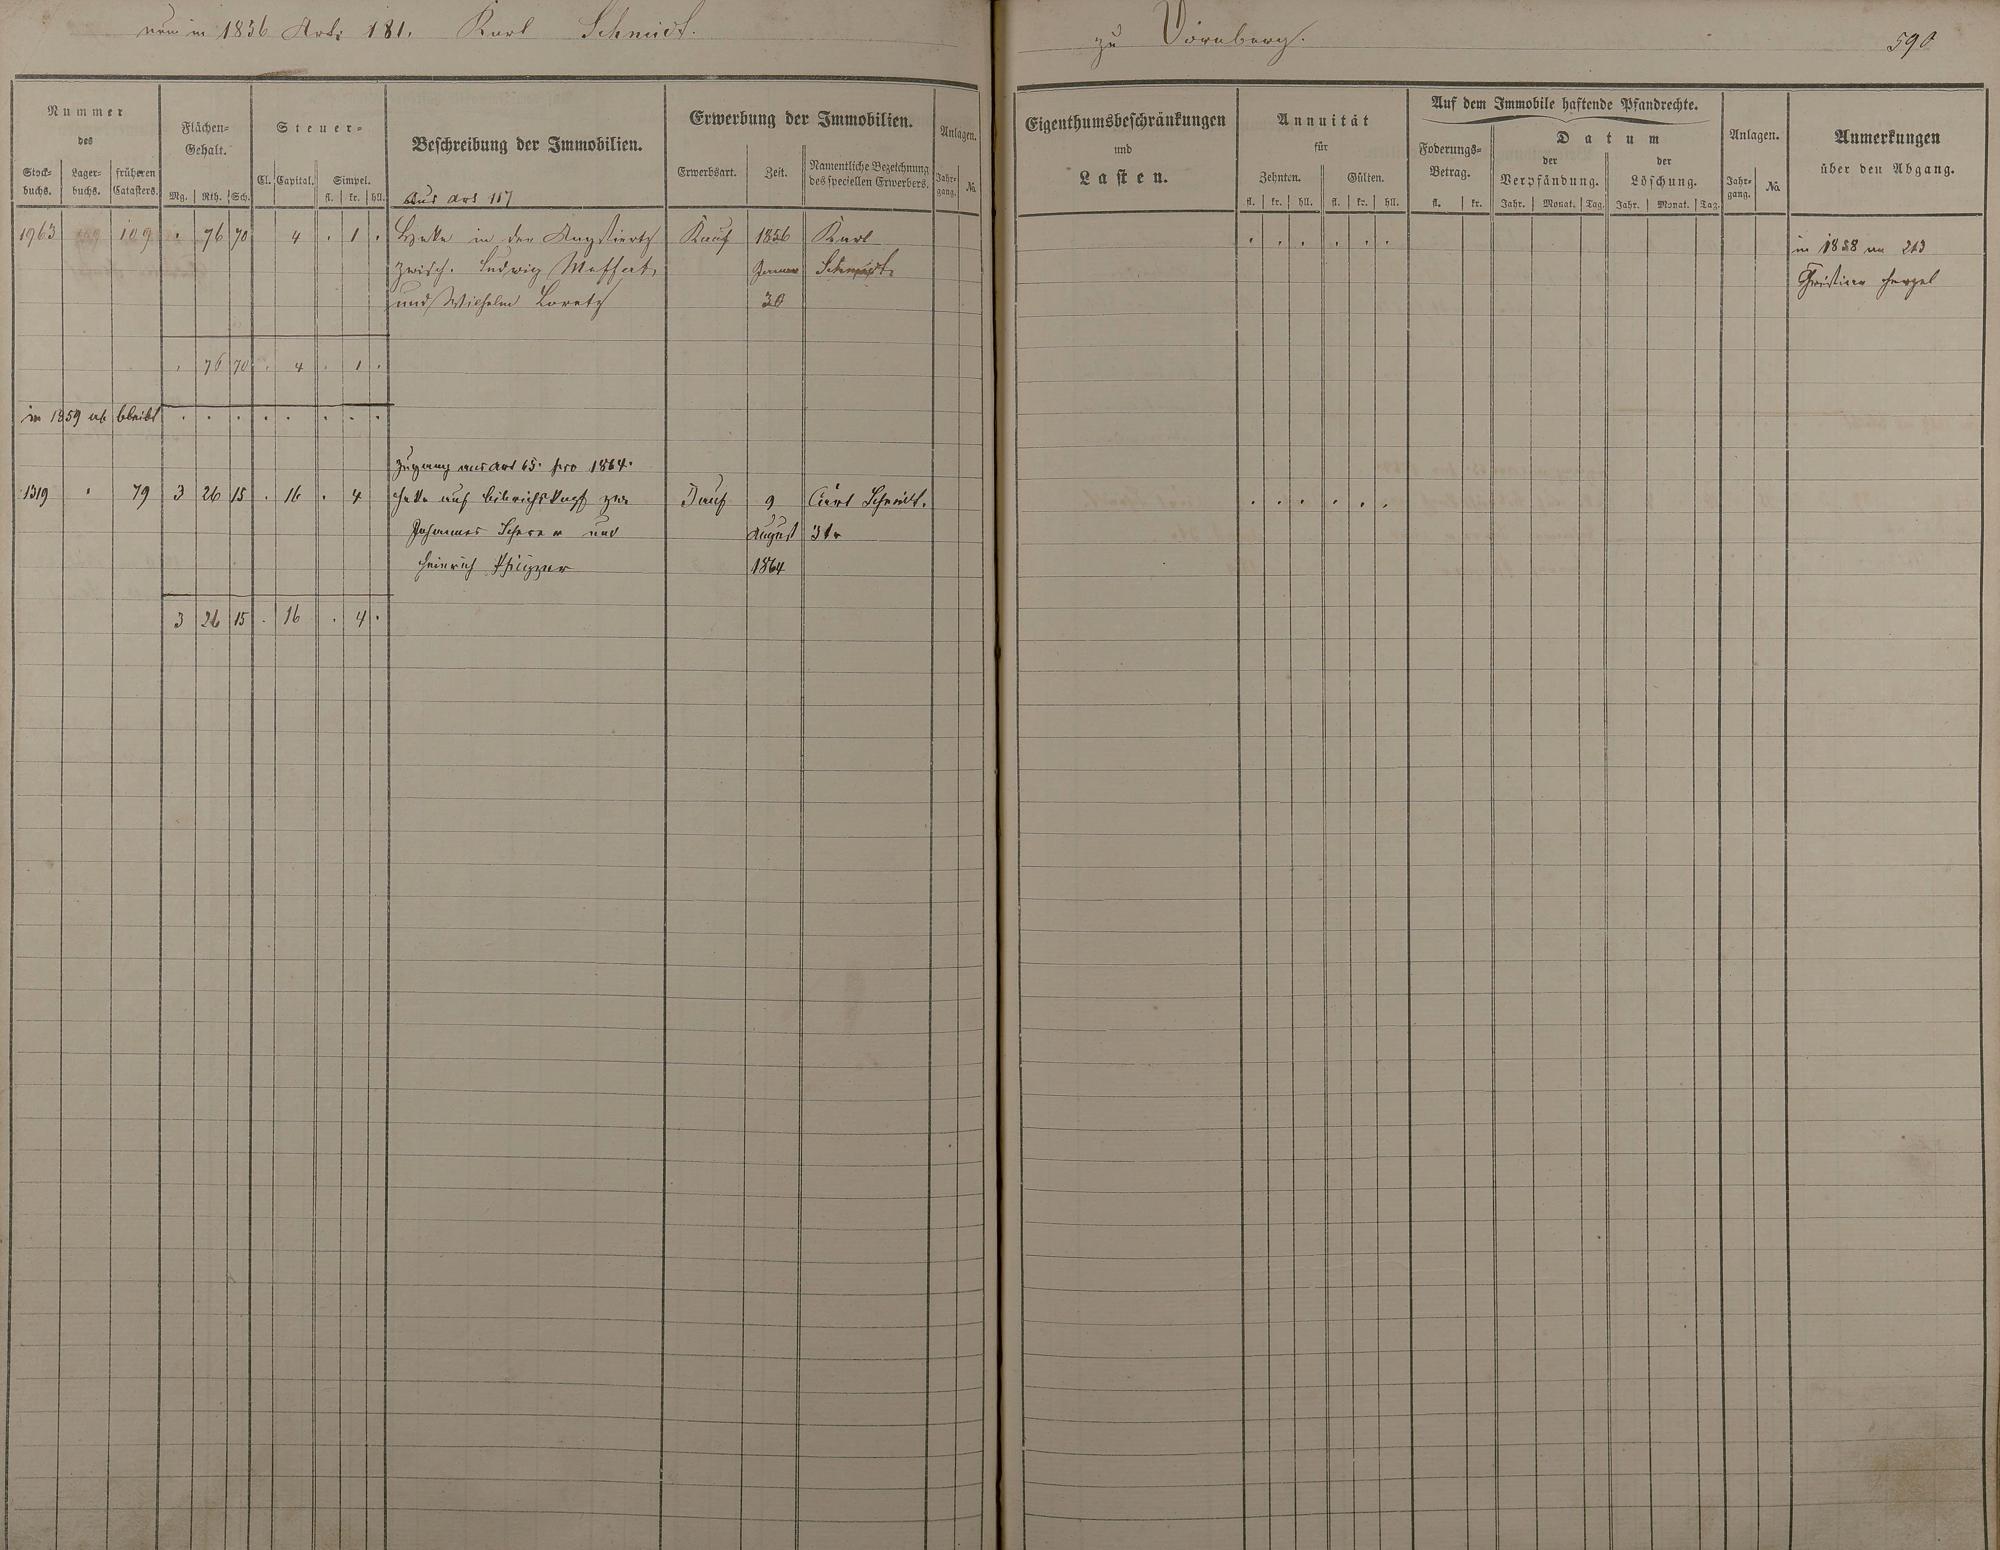 neu in 1856 Art: 181. Karl Schmidt.
zu Dörnberg.
590
Nummer
des
Stock-
buchs.
Lager-
buchs.
früheren
Catasters.
Flächen-
Gehalt.
Mg. Rth. Sch.
Steuer-
Cl. Capital.
Simpel.
fl. kr. hll.
Beschreibung der Immobilien.
Aus Art 117
Erwerbung der Immobilien.
Erwerbsart.
Zeit.
Namentliche Bezeichnung
des speciellen Erwerbers.
Anlagen.
Jahr-
gang.
No.
Eigenthumsbeschränkungen
und
Lasten.
Annuität
für
Zehnten.
Gülten.
fl. kr. hll. fl. kr. hll.
Auf dem Immobile haftende Pfandrechte.
Foderungs-
Betrag.
fl. kr.
Datum
der
Verpfändung.
der
Löschung.
Jahr. Monat. Tag. Jahr. Monat. Tag.
Anlagen.
Jahr-
gang.
No.
Anmerkungen
über den Abgang.
1963 109 . 76 70 4 . 1 . Hecke in der Kauf 1856 Karl . . . . . . in 1858 an 213
zwisch. Ludwig Januar Schmidt. Christian
und Wilhelm 30
. 76 70 . 4 . 1 .
in 1859 ab bleibt . . . . . . . .
Zugang aus Art 65. pro 1864.
1319 . 79 3 26 15 . 16 . 4 Hecke auf zw. Tauf 9 Carl Schmidt. . . . . . .
Johannes Scherer und August 31r
Heinrich 1864
3 26 15 . 16 . 4 .